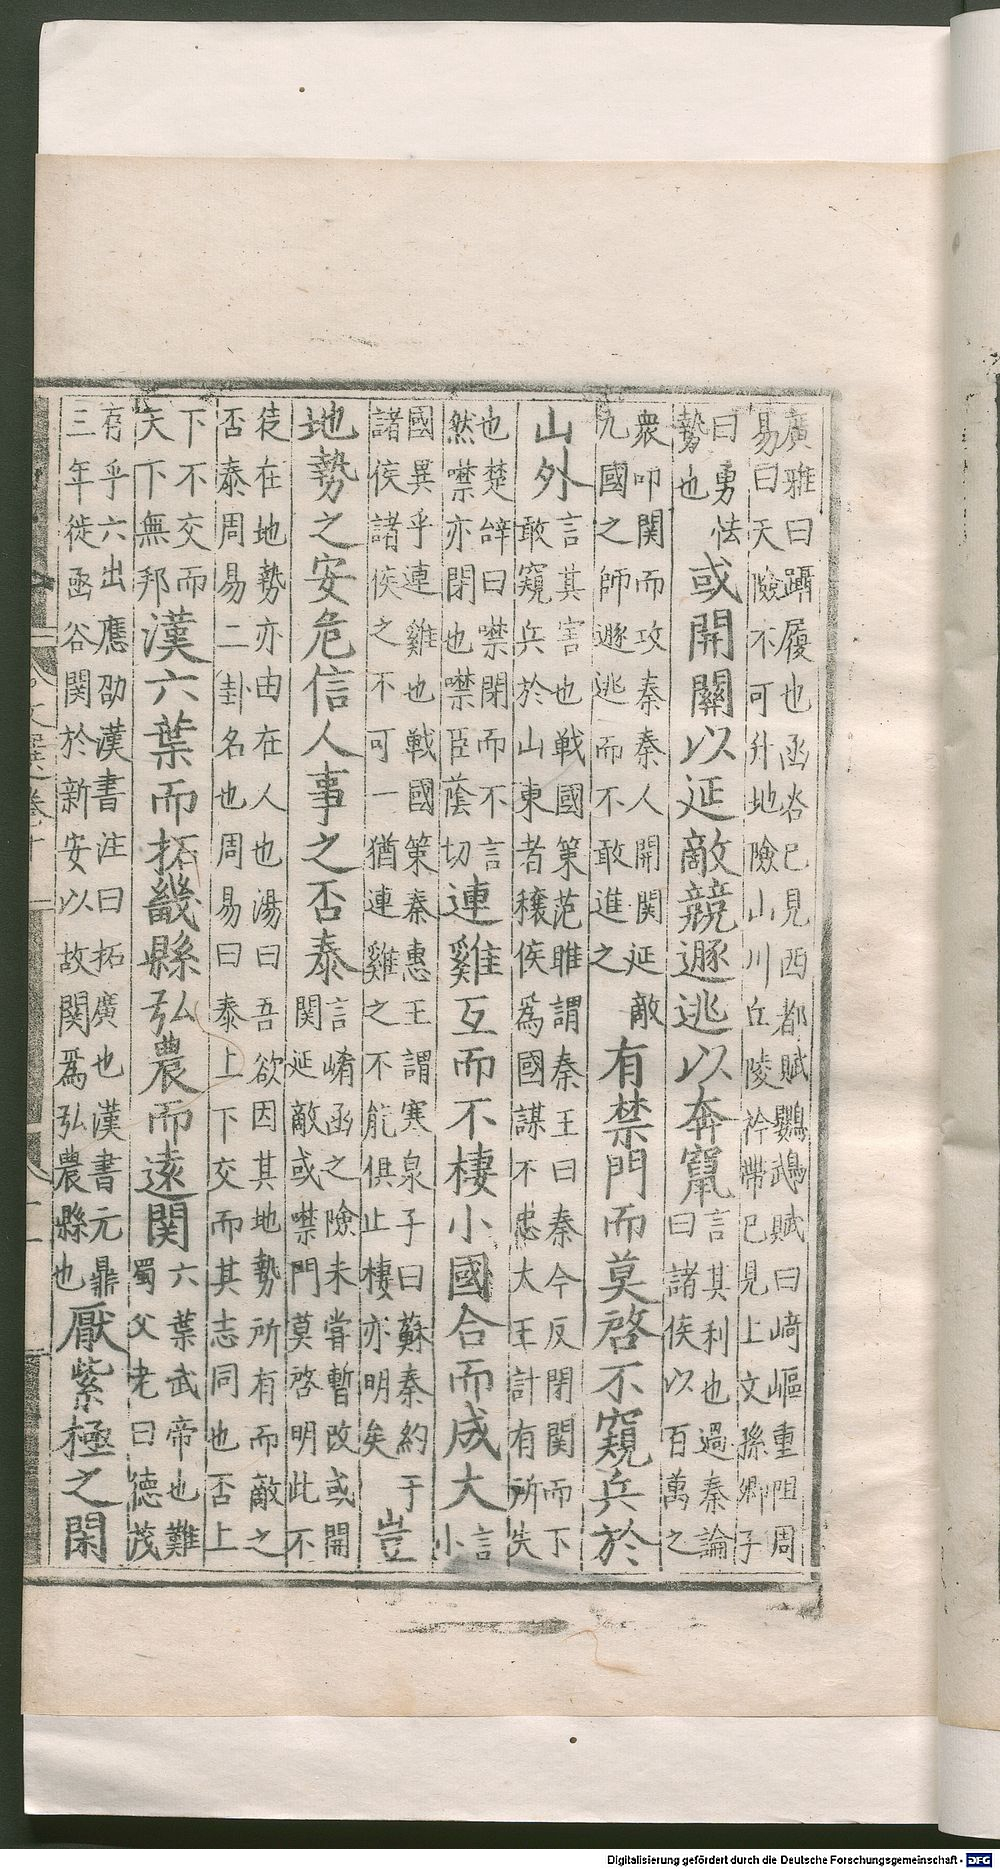 廣雅曰躡履也函谷已見西都賦鸚鵡賦曰崎嶇重阻周
易曰天險不可升地險山川丘陵衿帶已見上文孫卿子
曰勇怯
勢也
或開關以延敵競遯逃以奔竄
言其利也過秦論
曰諸侯以百萬之
衆叩関而攻秦秦人開関延敵
九國之師遯逃而不敢進之
有禁門而莫啓不窺兵於
山外
言其害也戦國策范雎謂秦王曰秦今反閉関而下
敢窺兵於山東者穰侯為國謀不忠太王計有所失
也楚辞曰噤閉而不言
然噤亦閉也噤臣蔭切
連雞互而不棲小國合而成大
言
小
國異乎連雞也戦國策秦惠王謂寒泉子曰蘇秦約于
諸侯諸侯之不可一猶連雞之不能俱止棲亦明矣
豈
地勢之安危信人事之否泰
言崤函之險未嘗暫改或開
関延敵或噤門莫啓明此不
徒在地勢亦由在人也湯曰吾欲因其地勢所有而敵之
否泰周易二卦名也周易曰泰上下交而其志同也否上
下不交而
天下無邦
漢六葉而拓畿縣弘農而遠関
六葉武帝也難
蜀父老曰德茂
有乎六出應劭漢書注曰拓廣也漢書元鼎
三年徙函谷関於新安以故関爲弘農縣也
厭紫極之閑
Digitalisierung gefördert durch die Deutsche Forschungsgemeinschaft - DFG